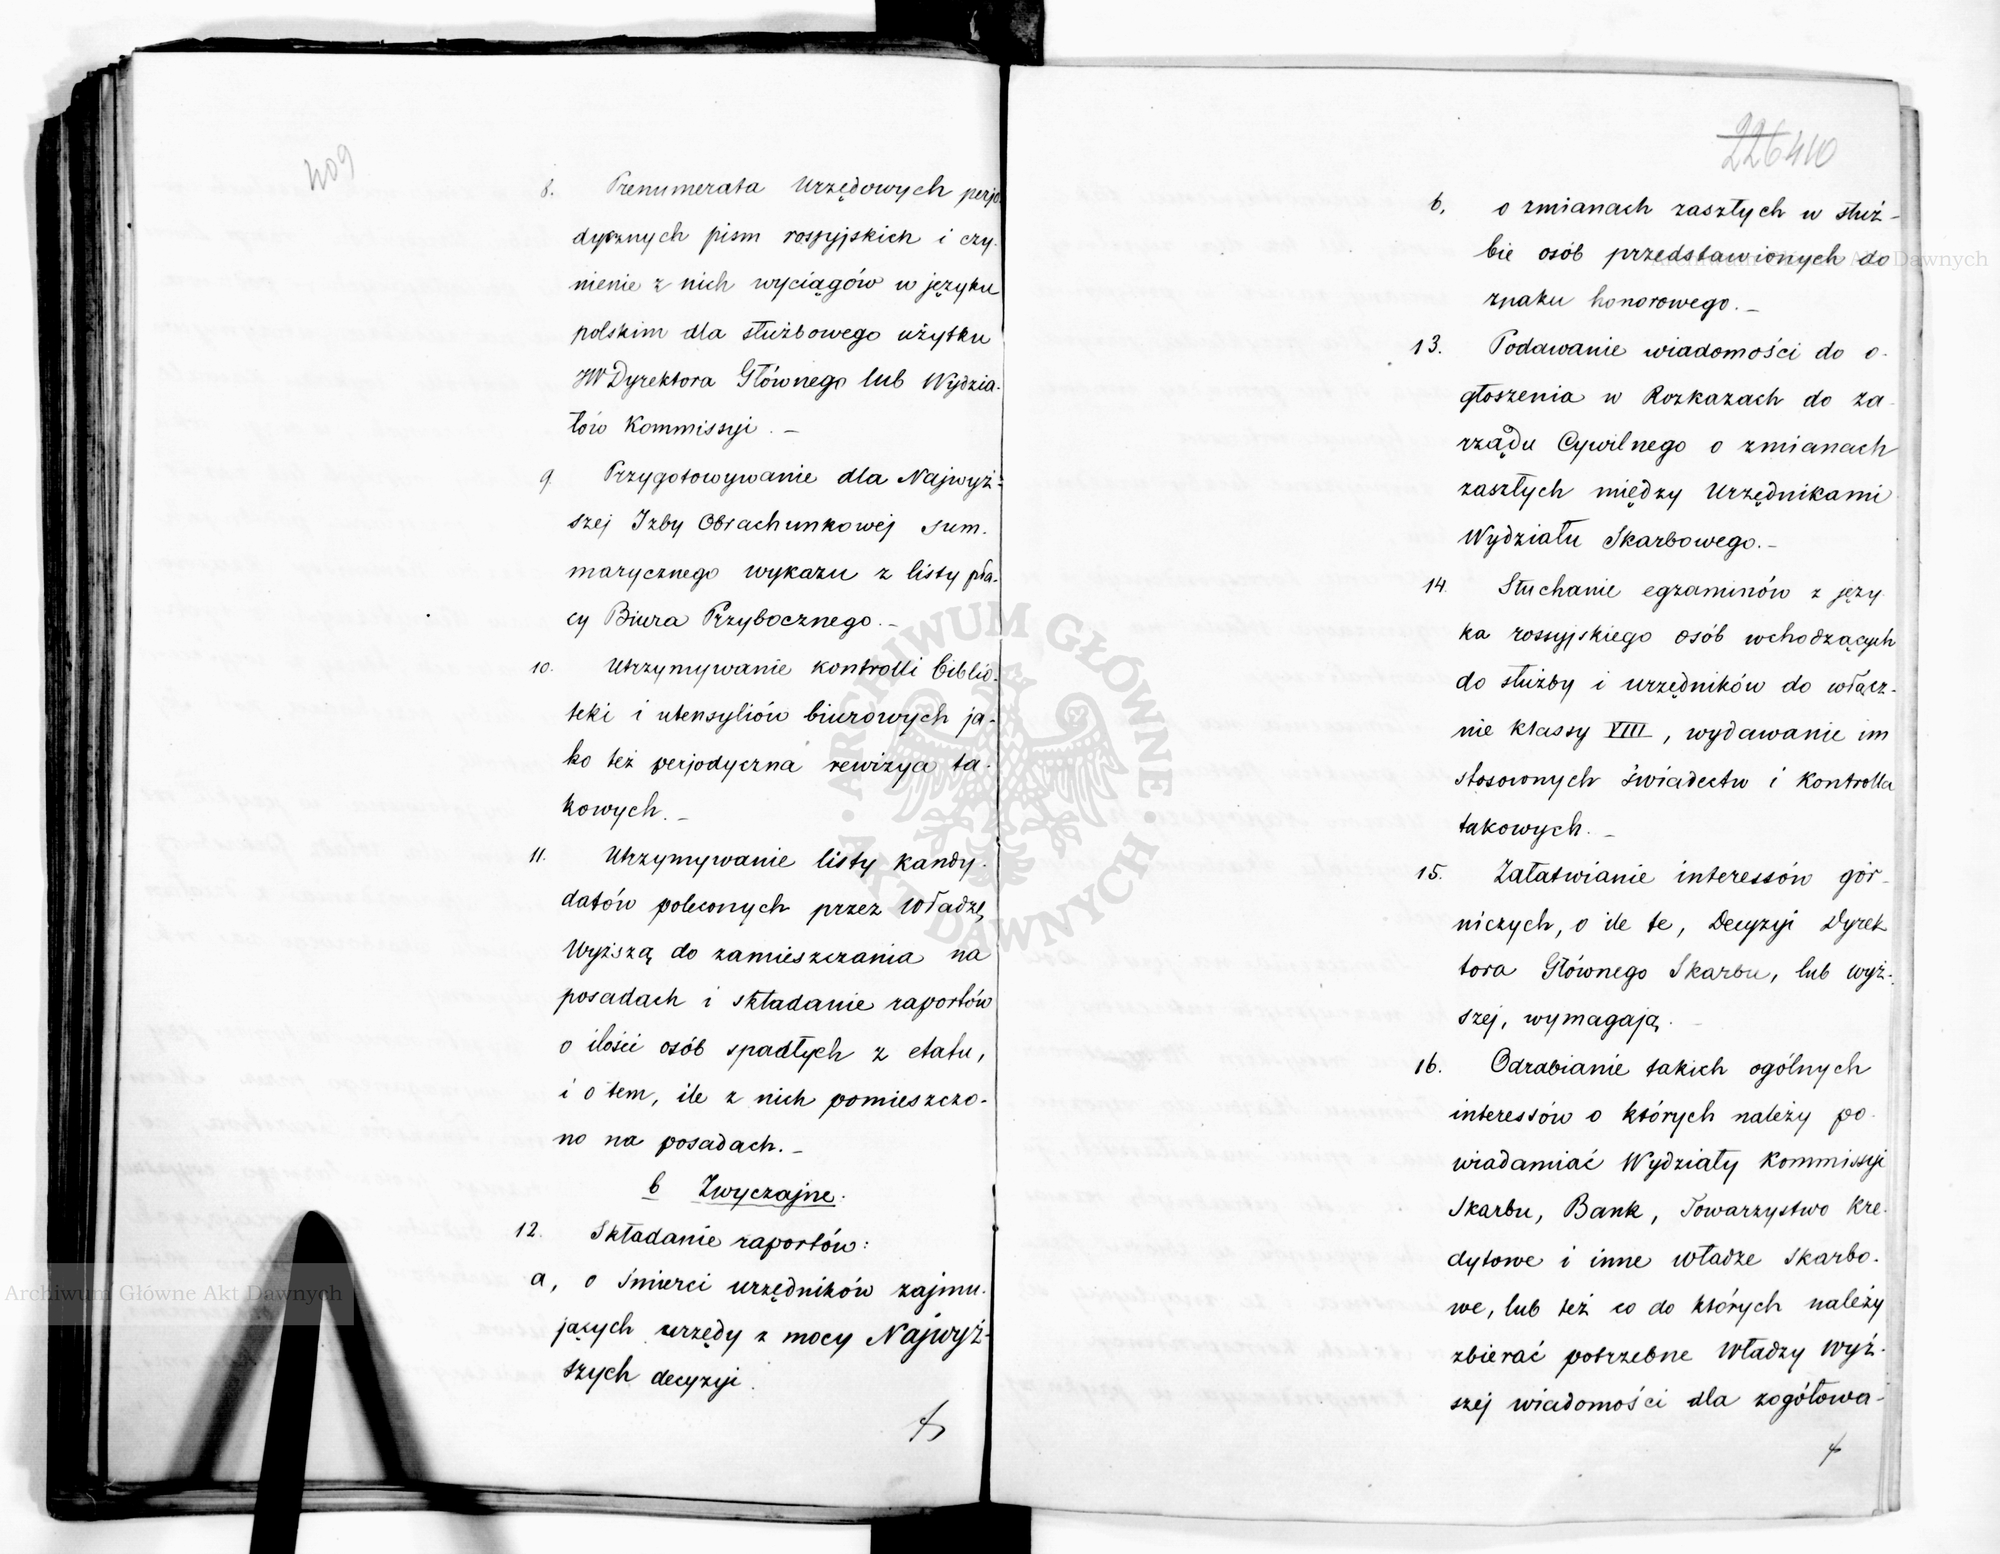 409
8. Prenumerata Urzędowych perjo-
dycznych pism rossyjskich i czy-
nienie z nich wyciągów w języku
polskim dla służbowego użytku
JW Dyrektora Głównego lub Wydzia-
łów Kommissyi. –
9. Przygotowywanie dla Najwyż-
szej Izby Obrachunkowej sum-
marycznego wykazu z listy pła-
cy Biura Przybocznego. –
10. Utrzymywanie kontrolli biblio-
teki i utensyliów biurowych ja-
ko też perjodyczna rewizya ta-
kowych. –
11. Utrzymywanie listy kandy-
datów poleconych przez Władzę
Wyższą do zamieszczania na
posadach i składanie raportów
o ilości osób spadłych z etatu,
i o tem, ile z nich pomieszczo-
no na posadach. –
b Zwyczajne.
12. Składanie raportów:
a, o śmierci urzędników zajmu-
jących urzędy z mocy Najwyż-
szych decyzyi.
226 410
b, o zmianach zaszłych w służ-
bie osób przedstawionych do
znaku honorowego. –
13. Podawanie wiadomości do o-
głoszenia w Rozkazach do Za-
rządu Cywilnego o zmianach
zaszłych między Urzędnikami
Wydziału Skarbowego. –
14. Słuchanie egzaminów z języ-
ka rossyjskiego osób wchodzących
do służby i urzędników do włącz-
nie klassy VIII, wydawanie im
stosownych świadectw i kontrolla
takowych. –
15. Załatwianie interessów gór-
niczych, o ile te, Decyzyi Dyrek
tora Głównego Skarbu, lub wyż-
szej, wymagają. –
16. Odrabianie takich ogólnych
interessów o których należy po-
wiadamiać Wydziały Kommissyi
Skarbu, Bank, Towarzystwo Kre-
dytowe i inne władze skarbo-
we, lub też co do których należy
zbierać potrzebne Władzy Wyż-
szej wiadomości dla zogółowa-
ARCHIWUM GŁÓWNE AKT DAWNYCH
Archiwum Główne Akt Dawnych
Archiwum Główne Akt Dawnych